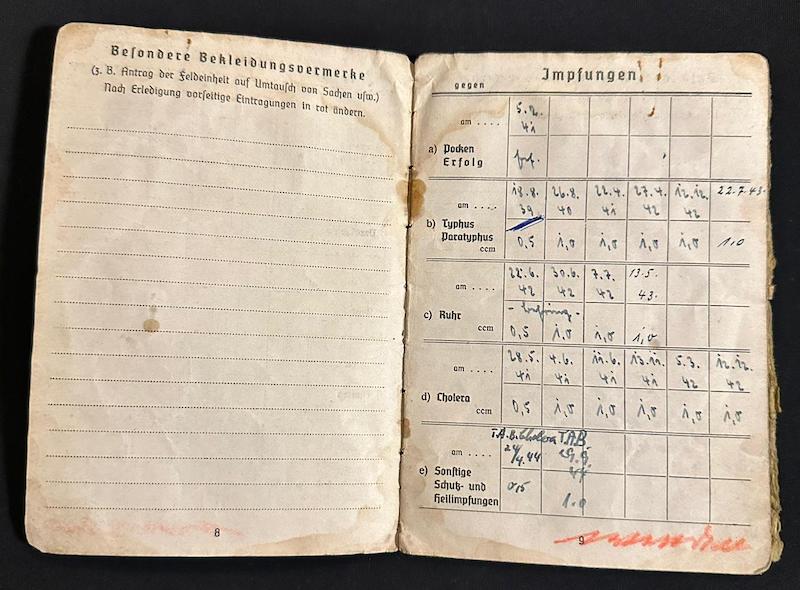 Besondere Bekleidungsvermerke
(z. B. Antrag der Feldeinheit auf Umtausch von Sachen usw.)
Nach Erledigung vorseitige Eintragungen in rot ändern.
8
Impfungen
gegen
am .... 5. 2. 41
a) Pocken
Erfolg
am .... 18.8. 39 26.8. 40 22.4. 41 27.4. 42 12.12. 42 22.7.43.
b) Typhus
Paratyphus
ccm 0,5 1,0 1,0 1,0 1,0 1,0
am .... 22.6. 42 30.6. 42 7.7. 42 13.5. 43.
c) Ruhr
ccm 0,5 1,0 1,0 1,0
am .... 28.5. 41 4.6. 41 11.6. 41 13.11. 41 5.3. 42 12.12. 42
d) Cholera
ccm 0,5 1,0 1,0 1,0 1,0 1,0
T.A.B. Cholera T.A.B.
am .... 24/4.44 29.9. 44
e) Sonstige
Schutz- und
Heilimpfungen
0,5 1.0
9